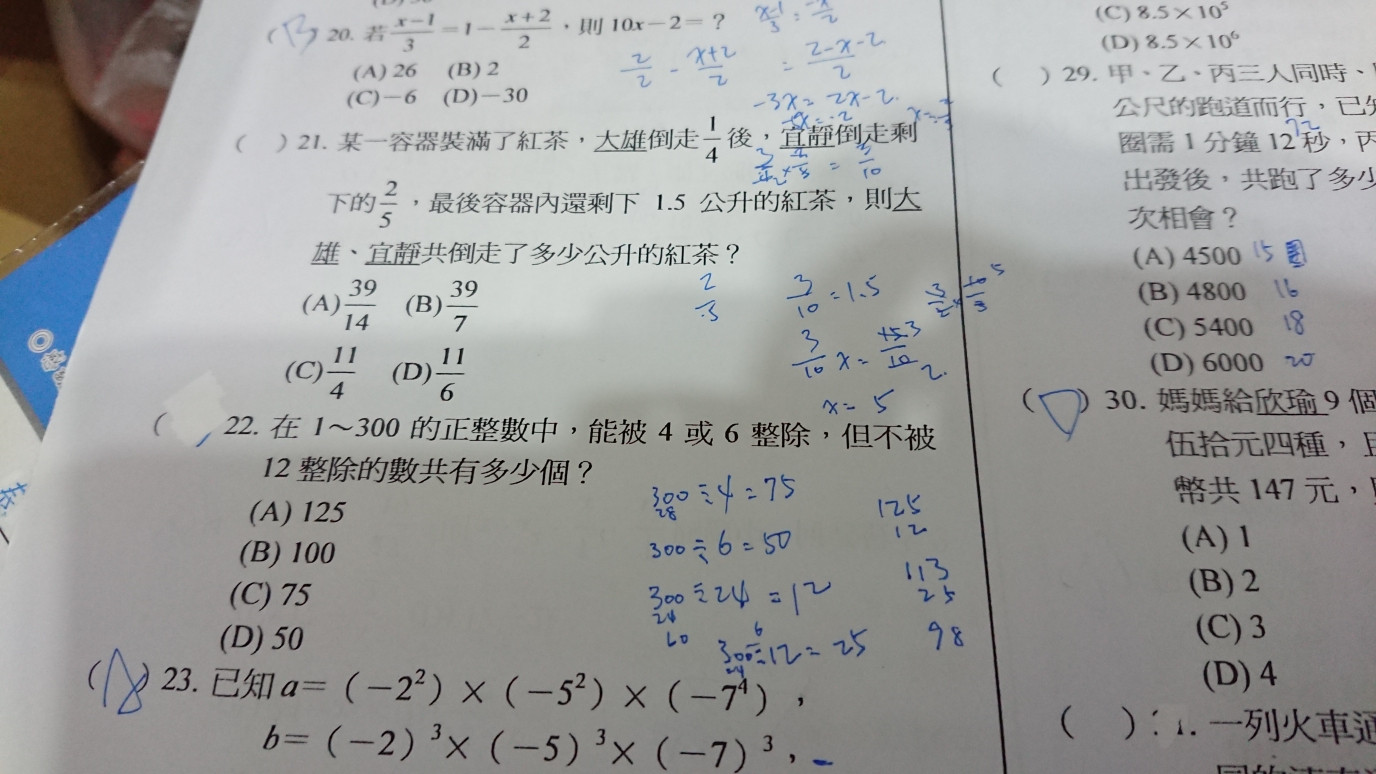 20. 若 (x−1)/3 = 1 − (x+2)/2，則 10x−2=？
(A) 26 (B) 2
(C) −6 (D) −30
( ) 21. 某一容器裝滿了紅茶，大雄倒走 1/4 後，宜靜倒走剩
下的 2/5，最後容器內還剩下 1.5 公升的紅茶，則大
雄、宜靜共倒走了多少公升的紅茶？
(A) 39/14 (B) 39/7
(C) 11/4 (D) 11/6
3/10 = 1.5
x = 5
( 22. 在 1～300 的正整數中，能被 4 或 6 整除，但不被
12 整除的數共有多少個？
(A) 125
(B) 100
(C) 75
(D) 50
300÷4=75
300÷6=50
300÷24=12
300÷12=25
125
12
113
25
98
23. 已知 a=（−2²）×（−5²）×（−7⁴），
b=（−2）³×（−5）³×（−7）³，
(C) 8.5×10⁵
(D) 8.5×10⁶
( ) 29. 甲、乙、丙三人同時、
公尺的跑道而行，已
72
圈需 1 分鐘 12 秒，丙
出發後，共跑了多少
次相會？
(A) 4500 15
(B) 4800 16
(C) 5400 18
(D) 6000 20
30. 媽媽給欣瑜 9 個
伍拾元四種，且
幣共 147 元，
(A) 1
(B) 2
(C) 3
(D) 4
一列火車通